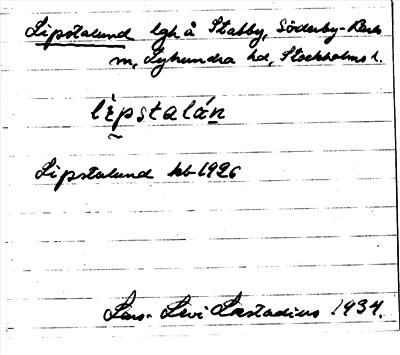 Lipstalund lgh å Stabby, Söderby-Karls
sn, Lyhundra hd, Stockholms l.
lìpstalán
Lipstalund kb 1926
Lars-Levi Læstadius 1934.